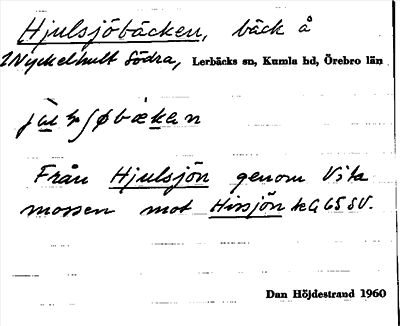 Hjulsjöbäcken, bäck å
1 Nyckelhult Södra, Lerbäcks sn, Kumla hd, Örebro län
Från Hjulsjön genom Vita
mossen mot Hissjön kG65SV.
Dan Höjdestrand 1960